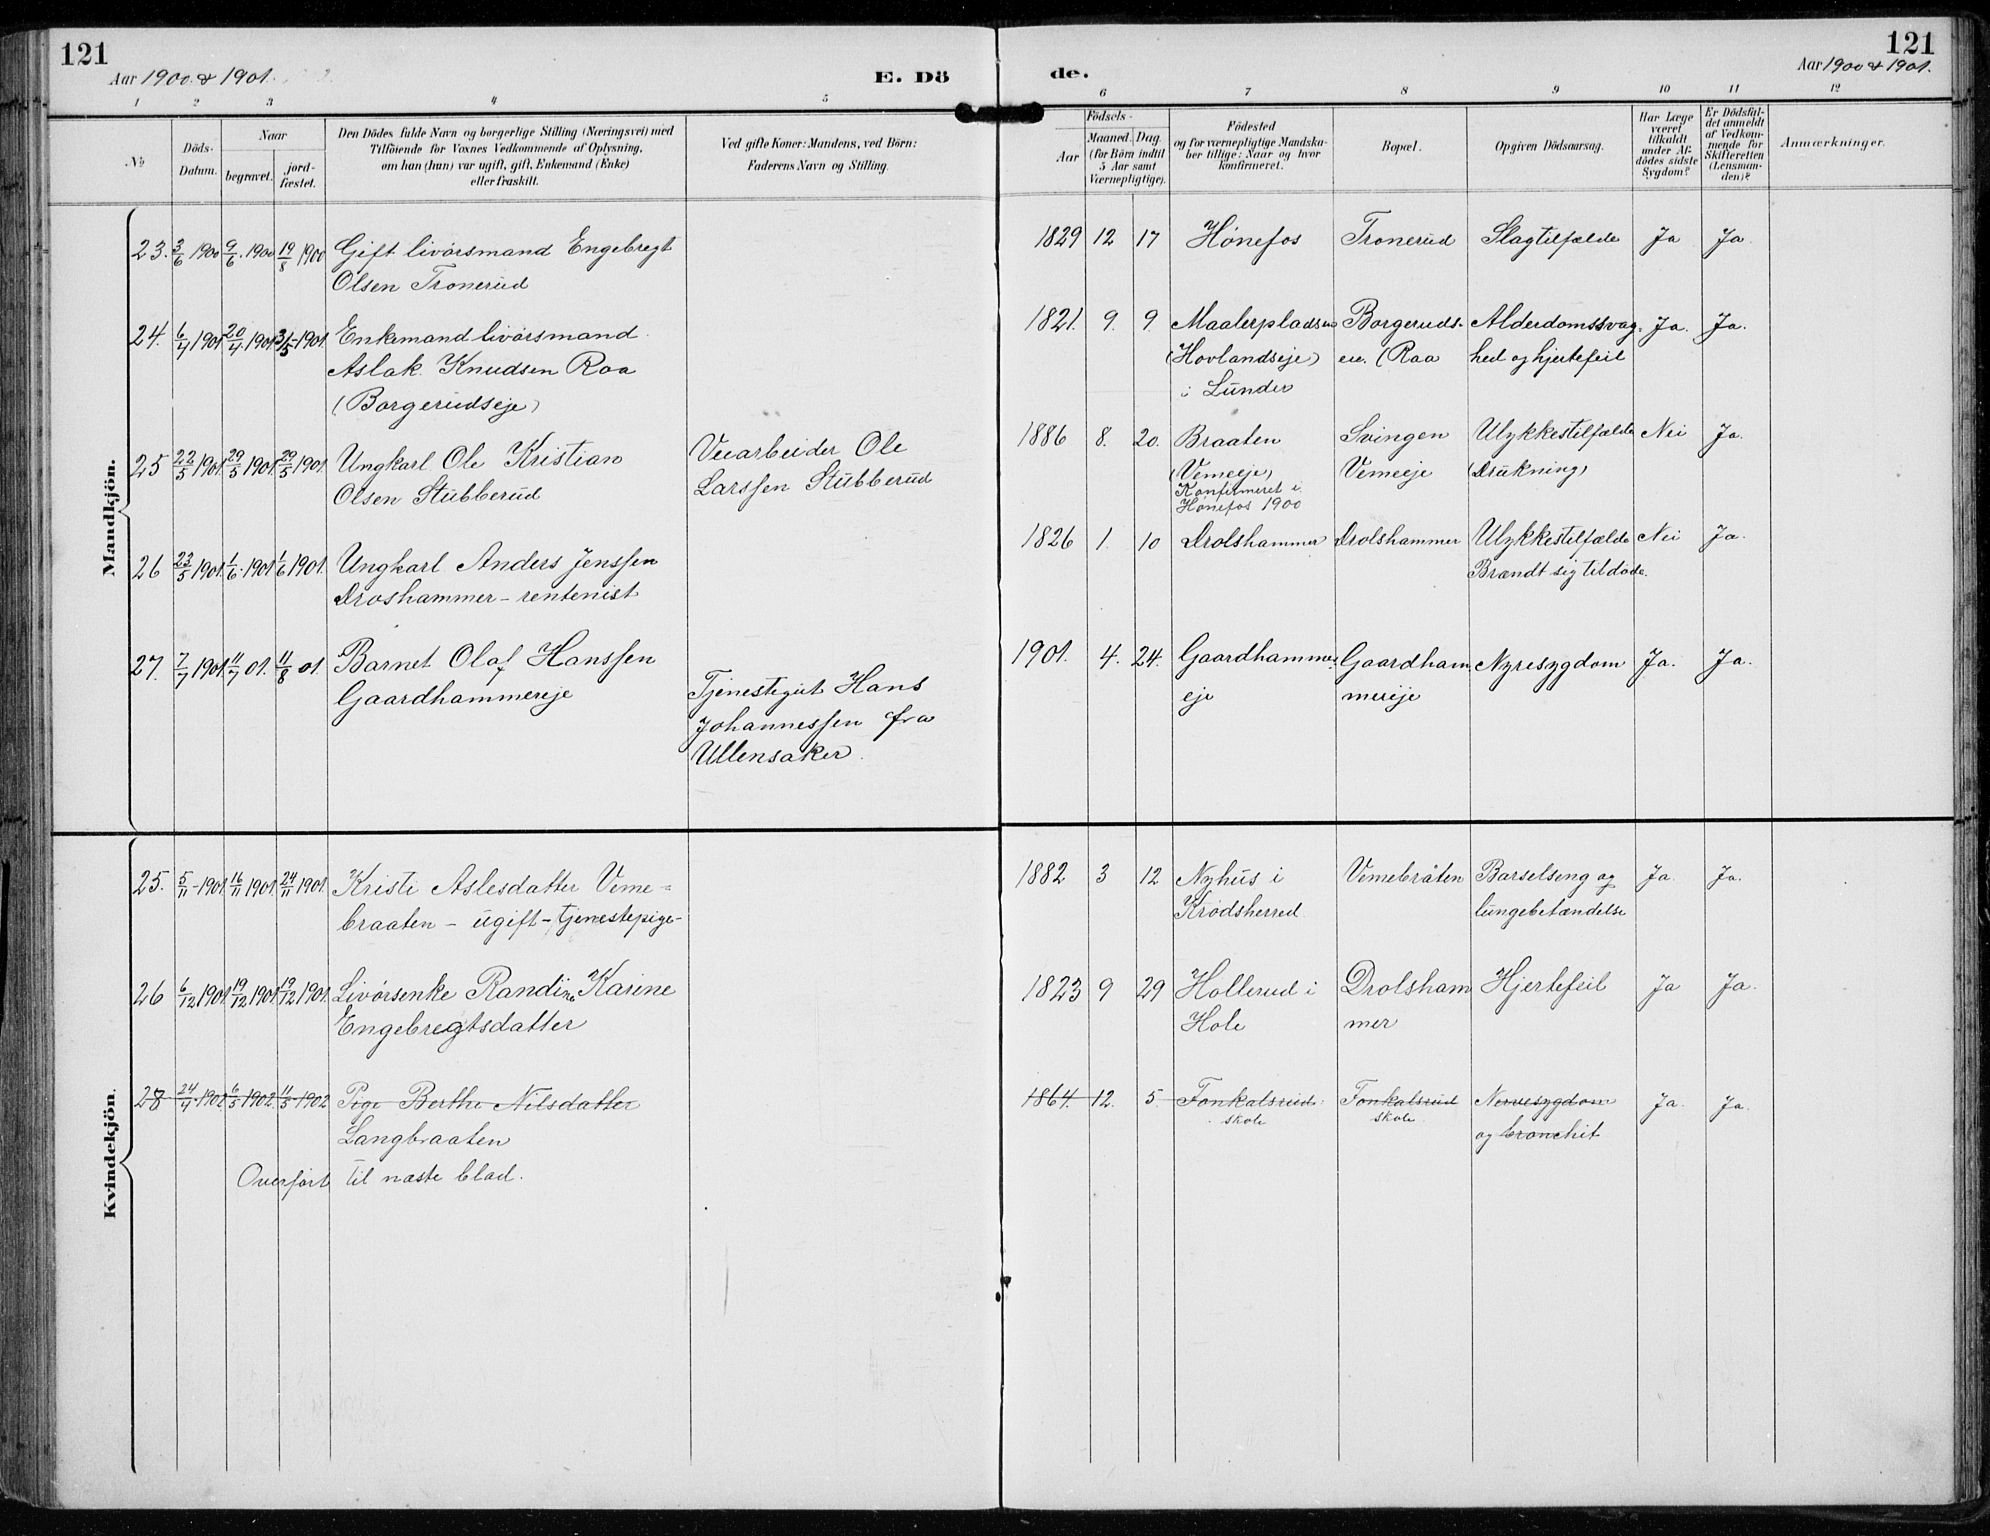 121
Aar 1900 & 1901.
E. Dö
de.
121
Aar 1900 & 1901.
1 2 3 4 5 6 7 8 9 10 11 12
No
Döds-
Datum.
Naar
begravet.
jord-
fæstet.
Den Dödes fulde Navn og borgerlige Stilling (Næringsvei) med
Tilföiende for Voxnes Vedkommende af Oplysning,
om han (hun) var ugift, gift, Enkemand (Enke)
eller fraskilt.
Ved gifte Koner: Mandens, ved Börn:
Faderens Navn og Stilling.
Födsels-
Aar
Maaned.
Dag.
(for Börn indtil
5 Aar samt
Værnepligtige).
Födested
og for værnepligtige Mandska-
ber tillige: Naar og hvor
konfirmeret.
Bopæl.
Opgiven Dödsaarsag.
Har Læge
været
tilkaldt
under Af-
dödes sidste
Sygdom?
Er Dödsfal-
det anmeldt
af Vedkom-
mende for
Skifteretten
(Lensman-
den)?
Anmærkninger.
Mandkjön.
23. 3/6 1900 9/6. 1900 19/8 1900 Gift livörsmand Engebregt 1829 12 17 Hönefos Tronerud Slagtilfælde Ja Ja.
Olsen Tronerud
24. 6/4 1901 20/4. 1901 3/5-1901. Enkemand livörsmand 1821. 9. 9 Maalerpladsen Borgeruds- Alderdomssvag- Ja. Ja.
Aslak Knudsen Roa (Hovlandseje) eie. (Raa hed og hjertefeil
(Borgerudseje) i Lunder
25 22/5 1901. 29/5 1901. 29/5 1901 Ungkarl Ole Kristian Veiarbeider Ole 1886 8. 20. Braaten Svingen Ulykkestilfælde Nei Ja.
Olsen Stubberud Larssen Stubberud (Vemeeje) Vemeeje (Drukning)
Konfirmeret i
Hönefos 1900
26 23/5 1901. 1/6. 1901 1/6 1901. Ungkarl Anders Jenssen 1826 1. 10 Drolshammer Drolshammer Ulykkestilfælde Nei Ja.
Droshammer - rentenist Brændt sig tildöde.
27. 7/7 1901 11/7 01. 11/8 01. Barnet Olaf Hanssen 1901. 4. 24. Gaardhammer Gaardham Nyresygdom Ja. Ja.
Gaardhammereje Tjenestegut Hans eje mereje
Johannessen fra
Ullensaker.
Kvindekjön.
25. 5/11-1901. 16/11 1901. 24/11 1901. Kristi Aslesdatter Veme= 1882 3 12 Nyhus i Vemebråten Barselseng og Ja. Ja.
braaten - ugift - tjenestepige- Krödsherred lungebetændelse
26 6/12 1901 19/12 1901. 19/12 1901. Livörsenke Randine Karine 1823 9 29 Hollerud i Drolsham Hjertefeil Ja Ja.
Engebregtsdatter Hole mer
28 24/4. 1902 6/5 1902. 11/5 1902 Pige Berthe Nilsdatter 1864. 12. 5. Fonkalsrud Fonkalsrud Nervesygdom Ja. Ja.
Langbraaten skole skole og bronchit
Overfört til næste blad.